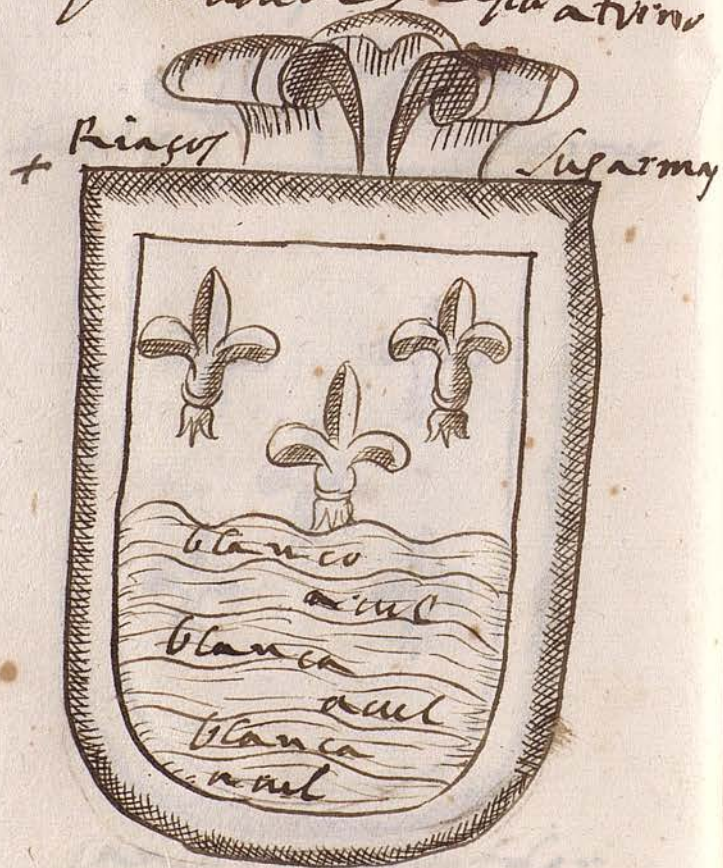 + Riaços
Sus armas
blanco
azul
blanca
azul
blanca
azul